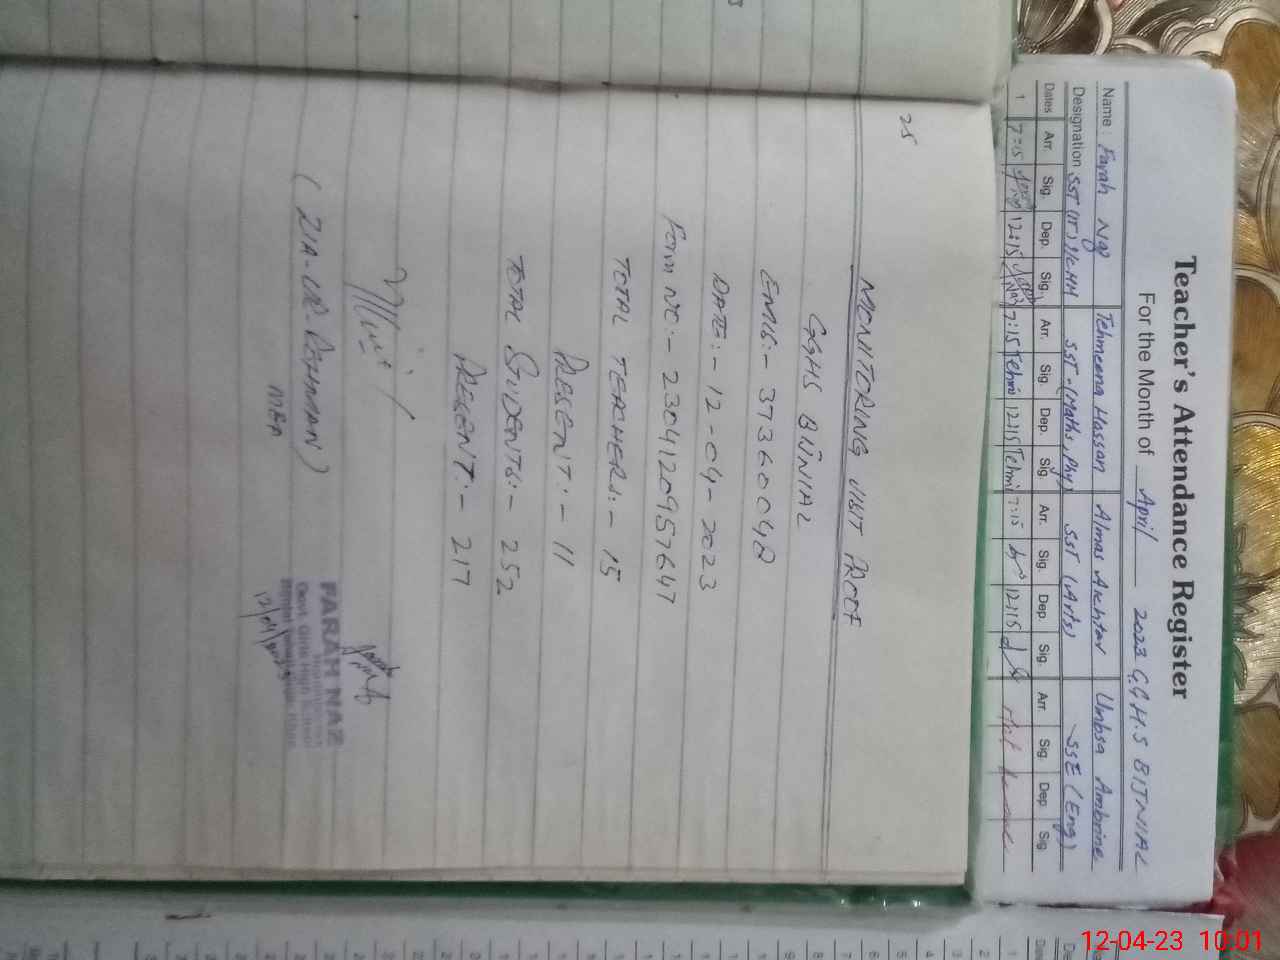 Teacher's Attendance Register
For the Month of April 2023 G.G.H.S BIJNIAL
Name : Farah Naz Tehmeena Hassan Almas Akhtar Umbsa Ambrine
Designation SST (IT) I/C HM SST-(Maths, Phy) SST (Arts) SSE (Eng)
Dates Arr. Sig. Dep. Sig. Arr. Sig. Dep. Sig. Arr. Sig. Dep Sig. Arr. Sig. Dep Sig
1 7:15 12:15 7:15 12:15 7:15 12:15
25
MONITORING VISIT PROOF
GGHS BIJNIAL
EMIS:- 37360048
DATE:- 12-04-2023
Form NO:- 2304120957647
TOTAL TEACHERS:- 15
PRESENT:- 11
TOTAL STUDENTS:- 252
PRESENT:- 217
(ZIA-UR-REHMAN)
MEA
FARAH NAZ
Govt. Girls High School
12-04-23 10:01